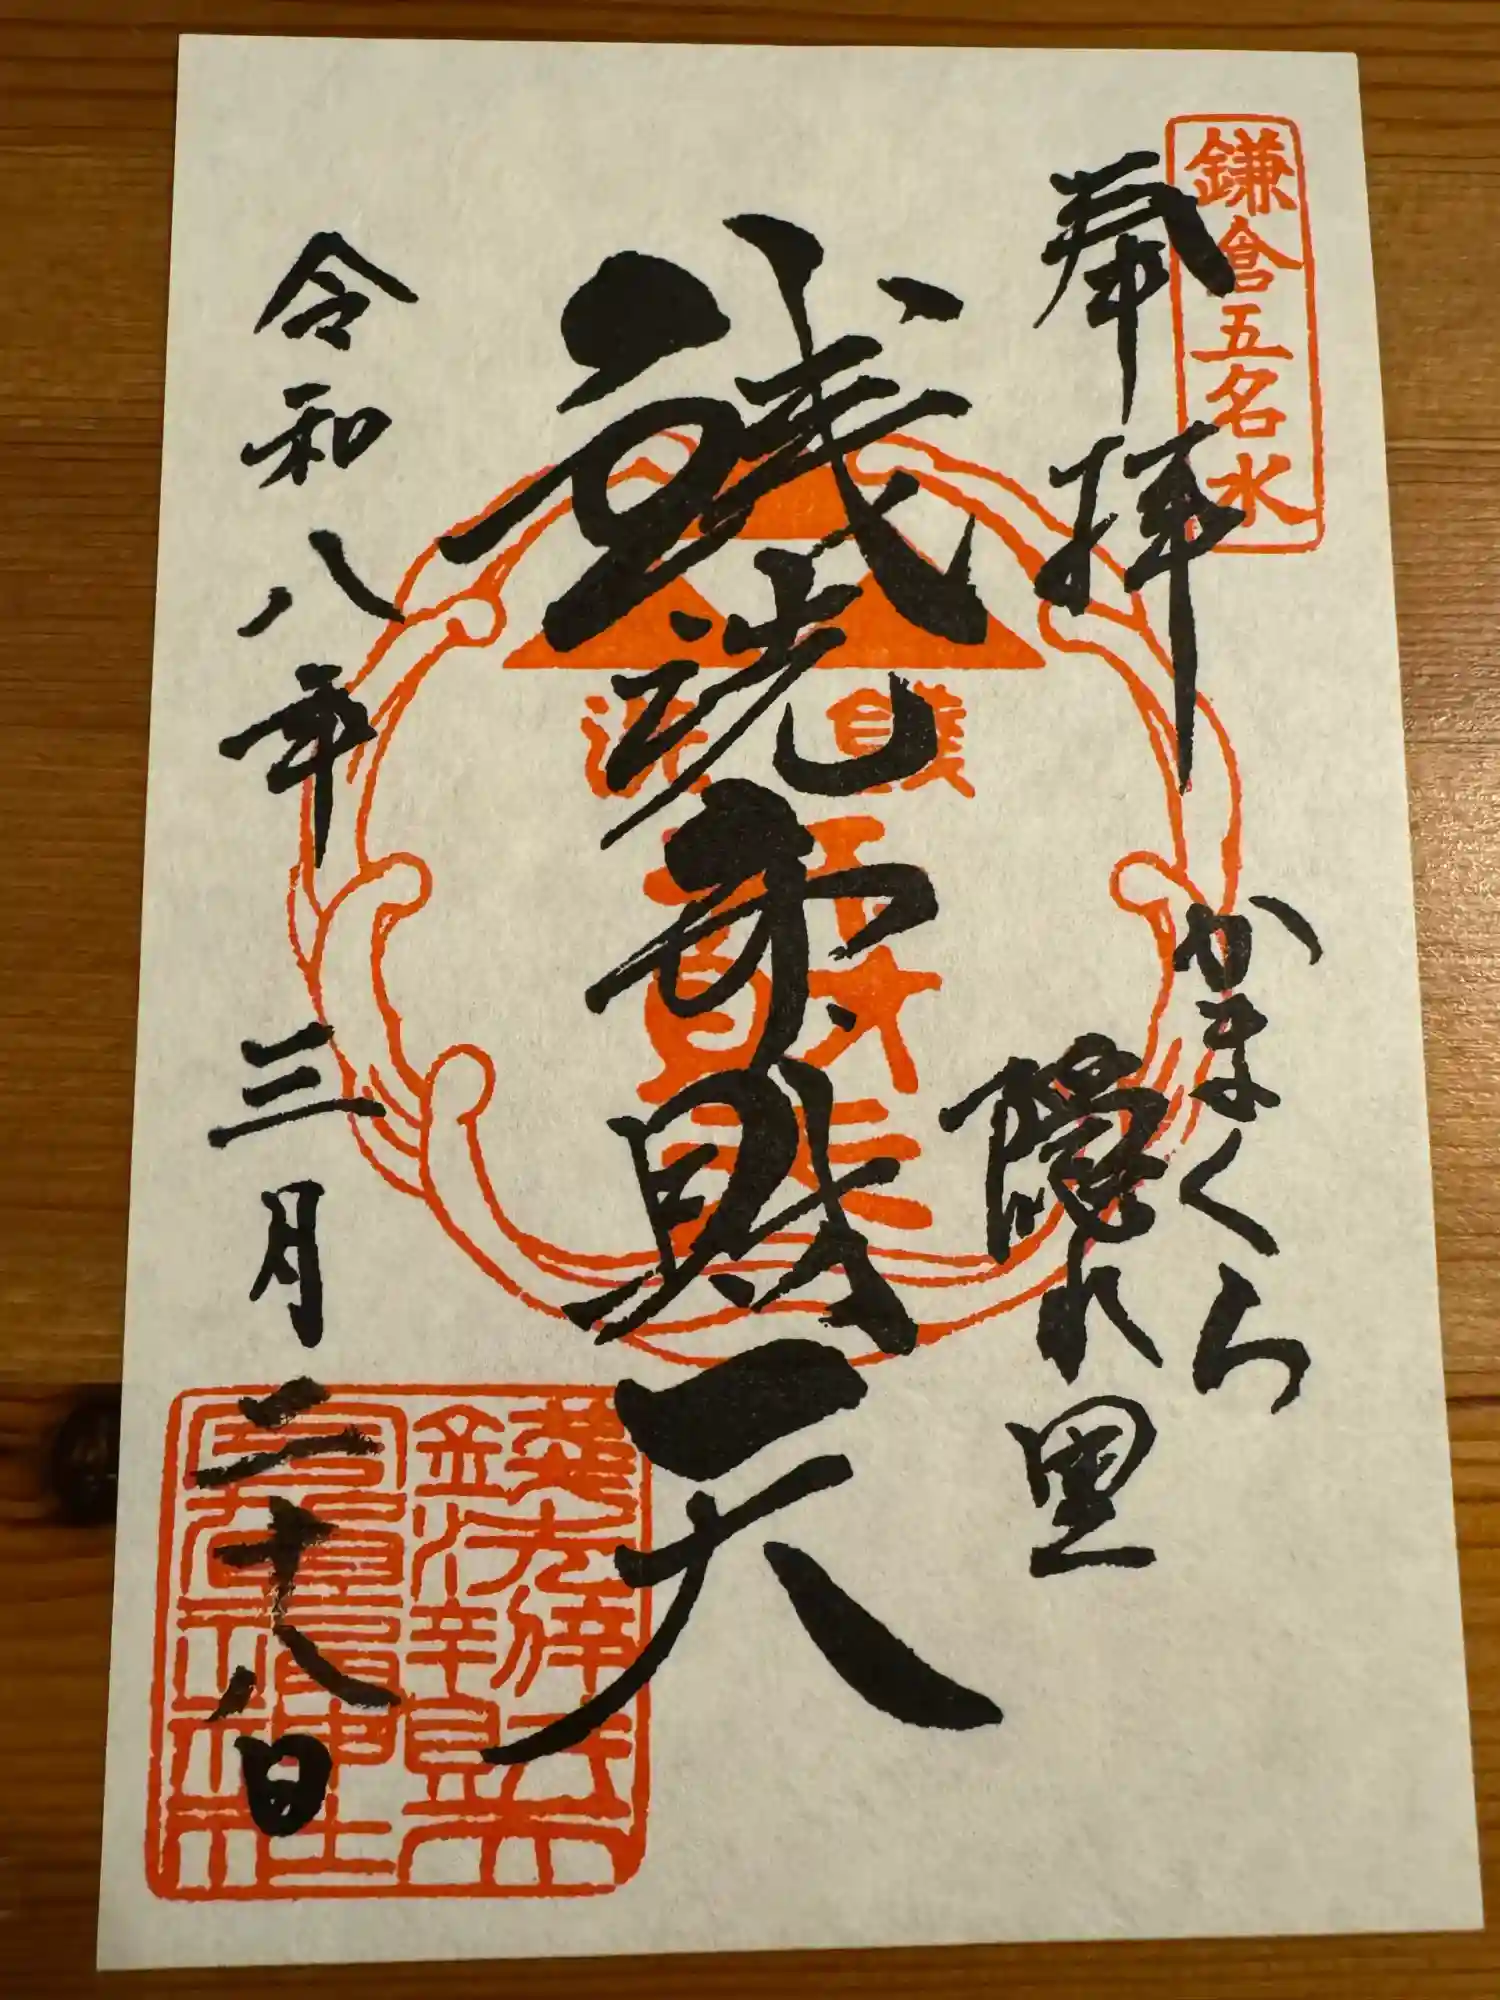 鎌倉五名水
奉拝
かまくら
隠れ里
銭洗弁財天
銭洗
令和八年 三月二十八日
銭洗辨財天
宇賀福神社